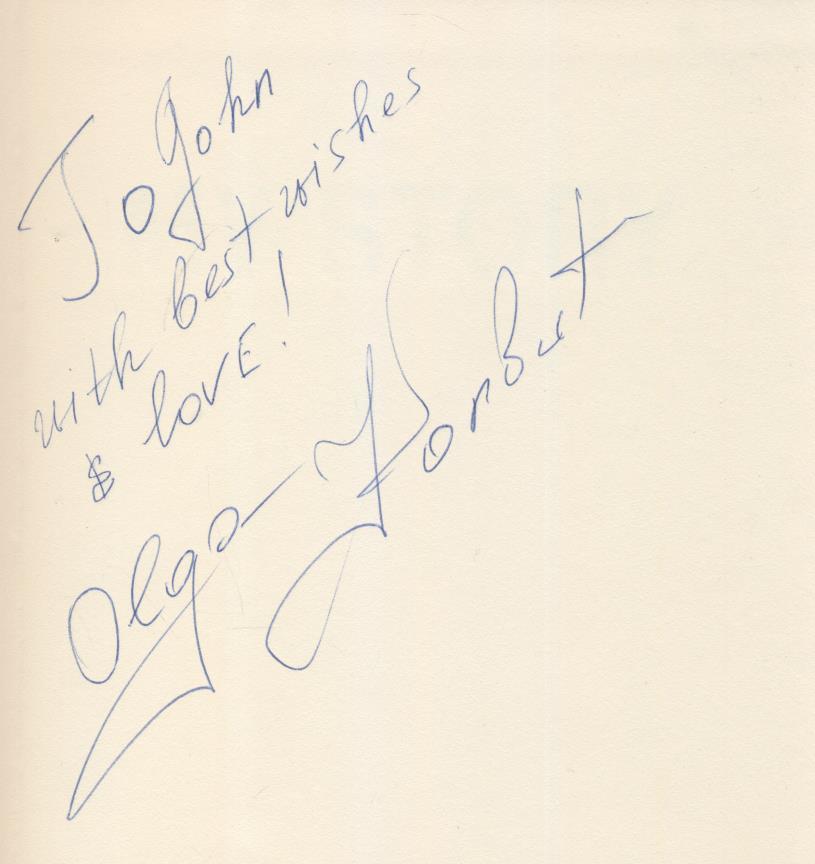 To John
with best wishes
& lovE!
Olga Korbut